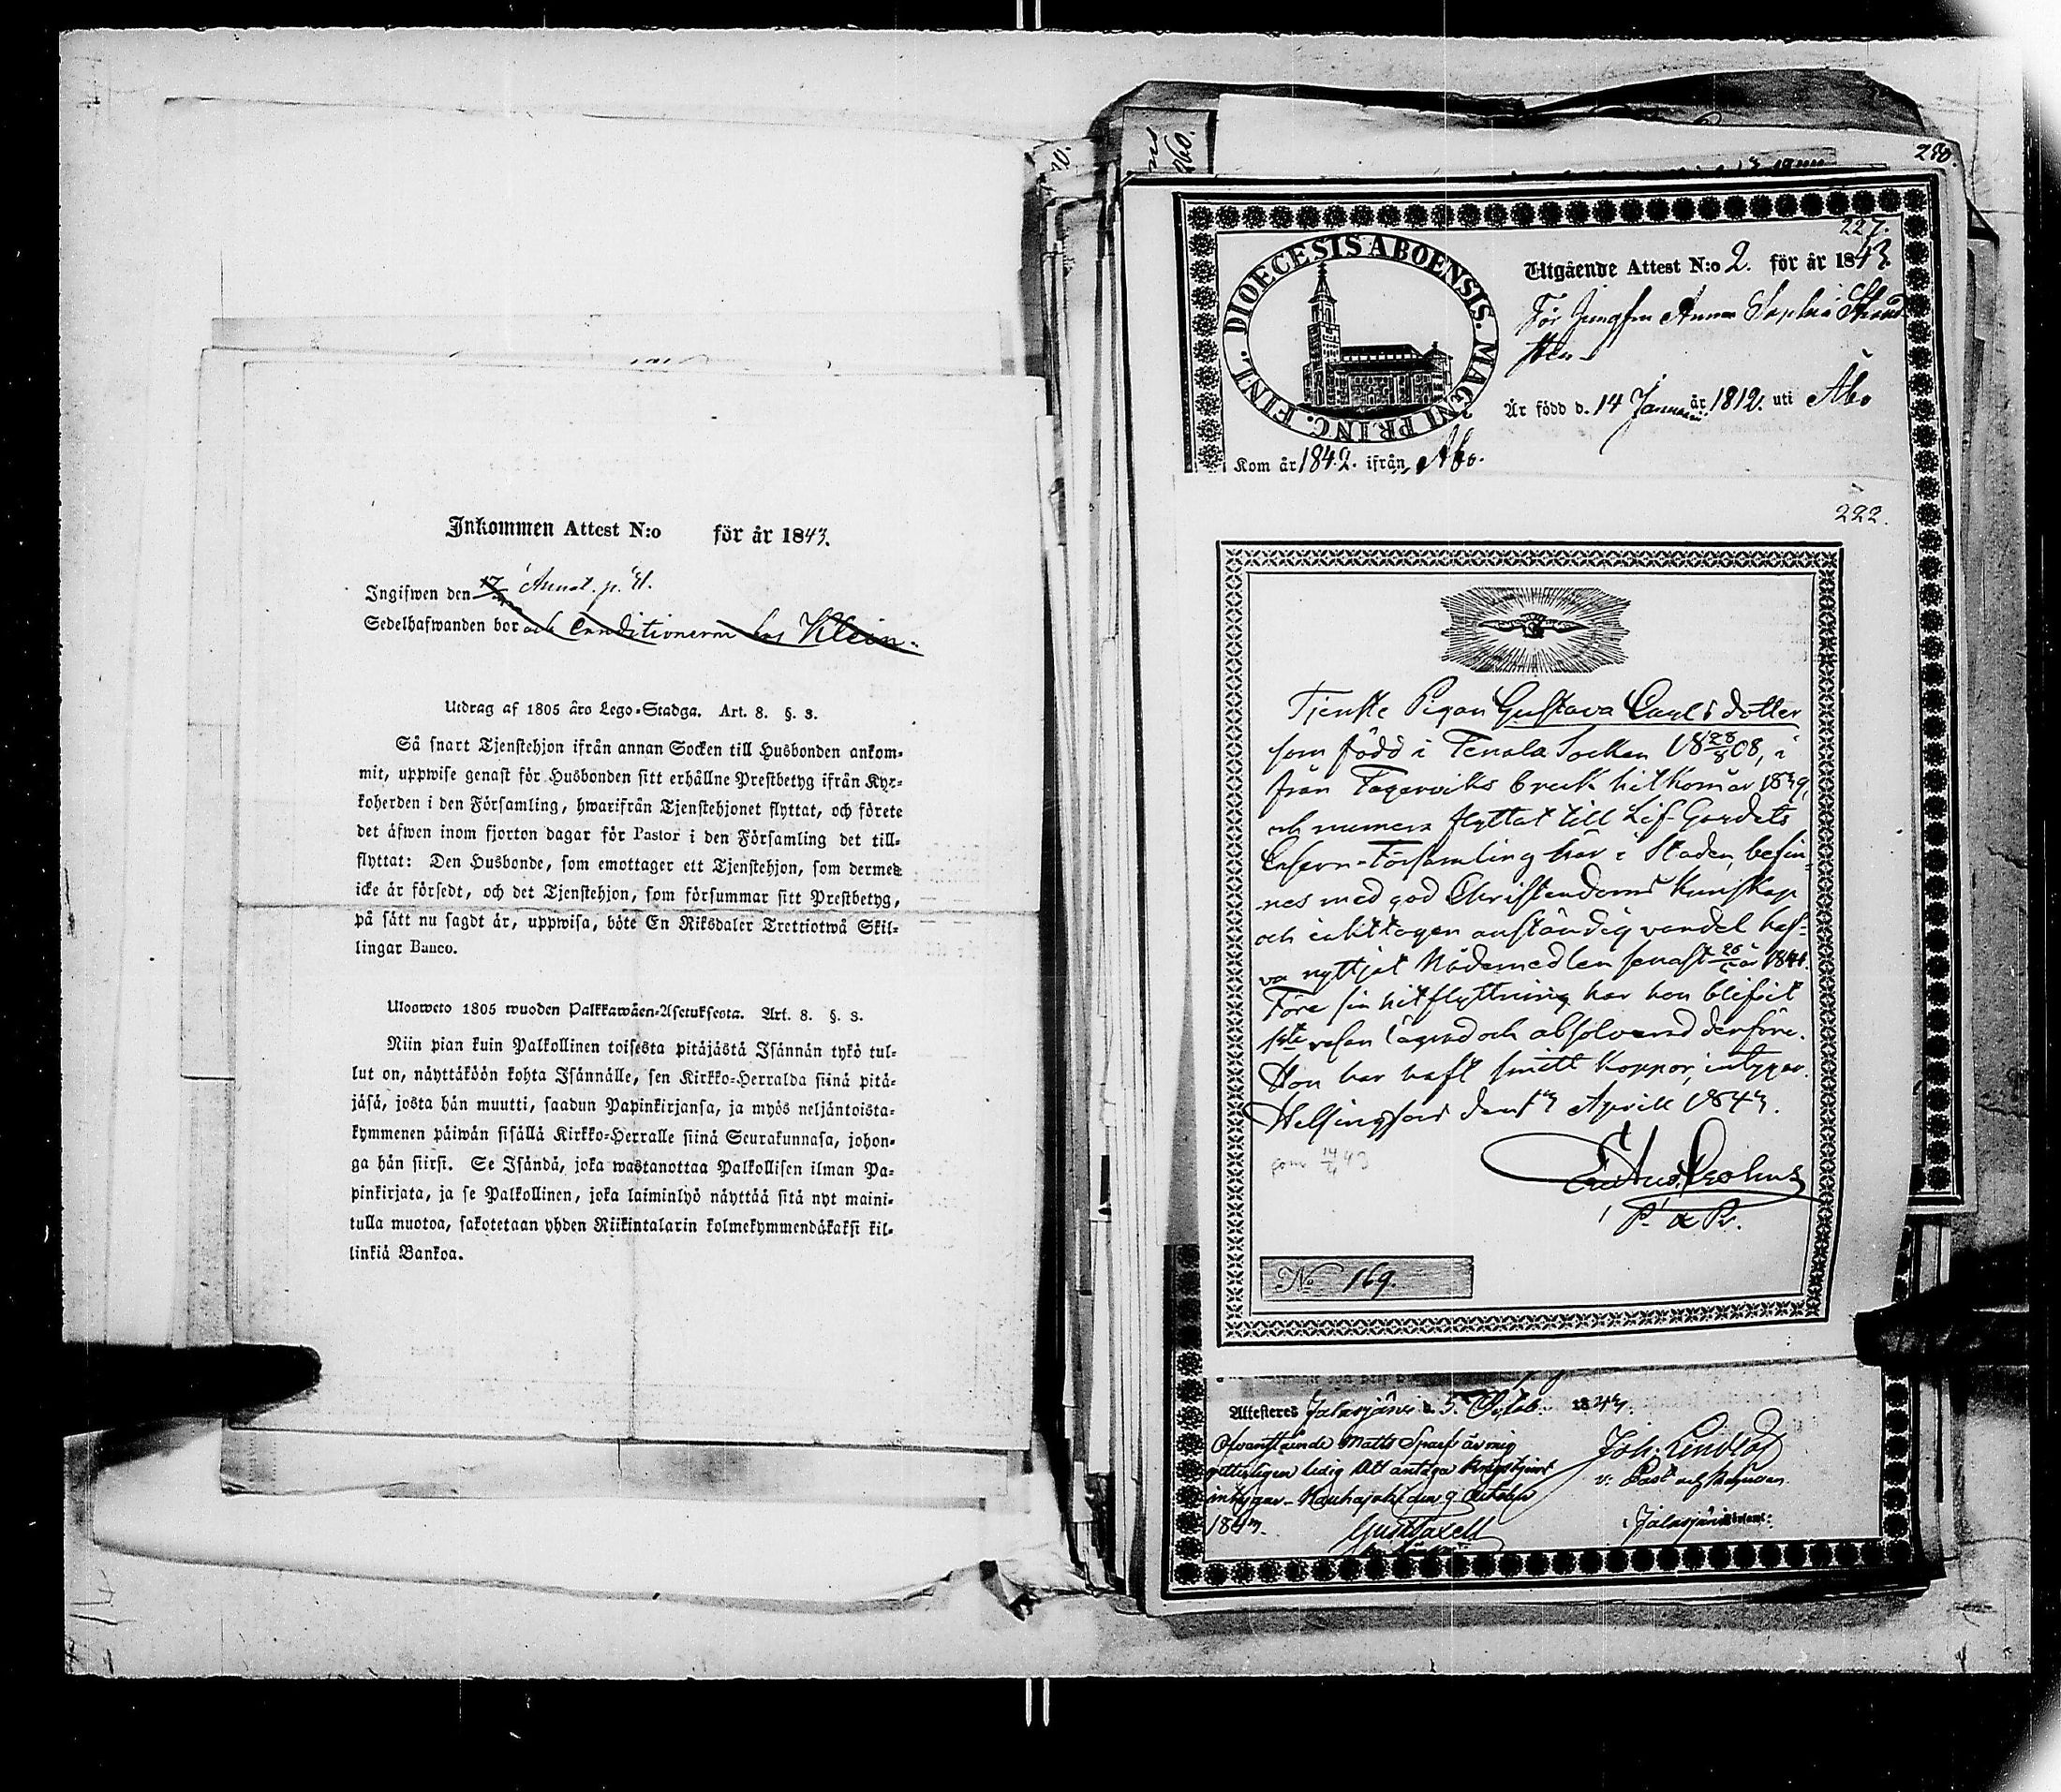 Inkommen Attest N:o för år 1843.
Ingifwen den 17 Annot. p. 41.
Sedelhafwanden bor och Conditionerar hos Klein.
Utdrag af 1805 års Lego-Stadga. Art. 8. §. 3.
Så snart Tjenstehjon ifrån annan Socken till Husbonden ankom-
mit, uppwise genast för Husbonden sitt erhållne Prestbetyg ifrån Kyr-
koherden i den Församling, hwarifrån Tjenstehjonet flyttat, och förete
det äfwen inom fjorton dagar för Pastor i den Församling det till-
flyttat: Den Husbonde, som emottager ett Tjenstehjon, som dermed
icke är försedt, och det Tjenstehjon, som försummar sitt Prestbetyg,
på sätt nu sagdt är, uppwisa, böte En Riksdaler Trettiotwå Skil-
lingar Banco.
Ulosweto 1805 wuoden Palkkawäen-Asetuksesta. Art. 8. §. 3.
Niin pian kuin Palkollinen toisesta pitäjästä Isännän tykö tul-
lut on, näyttäköön kohta Isännälle, sen Kirkko-Herralda siinä pitä-
jäsä, josta hän muutti, saadun Papinkirjansa, ja myös neljäntoista-
kymmenen päiwän sisällä Kirkko-Herralle siinä Seurakunnasa, johon-
ga hän siirsi. Se Isändä, joka wastanottaa Palkollisen ilman Pa-
pinkirjata, ja se Palkollinen, joka laiminlyö näyttää sitä nyt maini-
tulla muotoa, sakotetaan yhden Riikintalarin kolmekymmendäkaksi kil-
linkiä Bankoa.
280.
227.
DIOECESIS ABOENSIS. MAGNI PRINC. FINL.
Utgående Attest N:o 2. för år 1843.
För Jungfru Anna Sophia Strand
sten
Är född d. 14 Januarii år 1812. uti Åbo
Kom år 1842. ifrån Åbo.
222.
Tjenste Pigan Gustava Carls dotter
som född i Tenala Socken 18 28/8 08, i
från Fagerviks bruk hitkom år 1839,
och numera flyttat till Lif-Gardets
Casern-Församling här i Staden, befin-
nes med god Christendoms kunskap
och iakttagen anständig vandel haf-
va nyttjat Nådemedlen senast år 1841.
Före sin hitflyttning har hon blifvit
1sta resan lägrad och absolverad derföre.
Hon har haft smitt koppor, intygar.
Helsingfors den 13 Aprill 1843.
P. & Pr.
No 169.
Attesteres Jalasjärvi d. 5. Octob. 1843.
Ofvanstående Matts Sparf är mig
vetterligen ledig att antaga Krigstjenst
intygar - Kauhajoki den 9 October
1843.
Joh. Lindlöf
v. Past
i Jalasjärvi